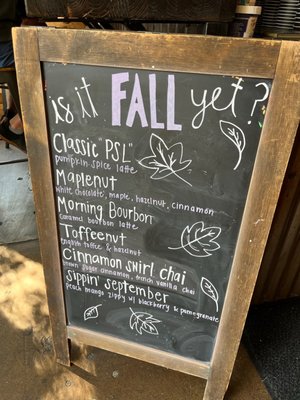 is it FALL yet?
Classic "PSL"
pumpkin spice latte
Maplenut
white chocolate, maple, hazelnut, cinnamon
Morning Bourbon
Caramel bourbon latte
Toffeenut
English toffee & hazelnut
Cinnamon swirl chai
brown sugar cinnamon, french vanilla chai
Sippin' september
peach mango zippy w/ blackberry & pomegranate